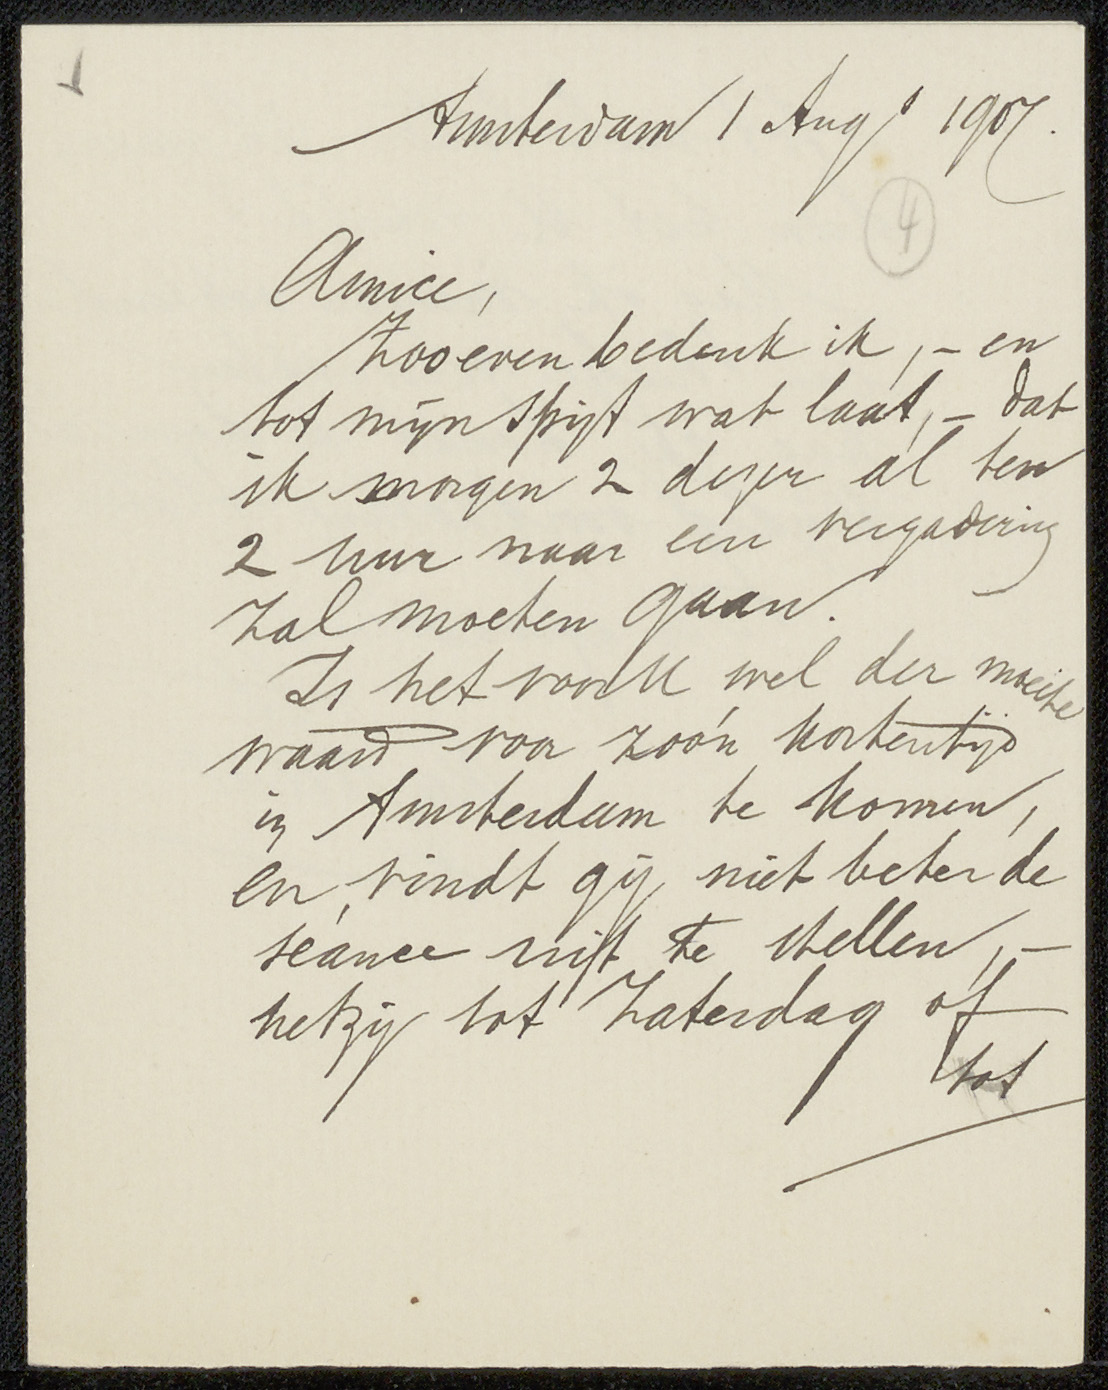 Amsterdam 1 Augs 1907.
4
Amice,
Zooeven bedenk ik, - en
tot mijn spijt wat laat, - dat
ik morgen 2 dezer al ten
2 uur naar een vergadering
zal moeten gaan.
Is het voor U wel der moeite
waard voor zoo'n korten tijd
in Amsterdam te komen,
en, vindt gij niet beter de
seance uit te stellen, -
hetzij tot Zaterdag of
tot